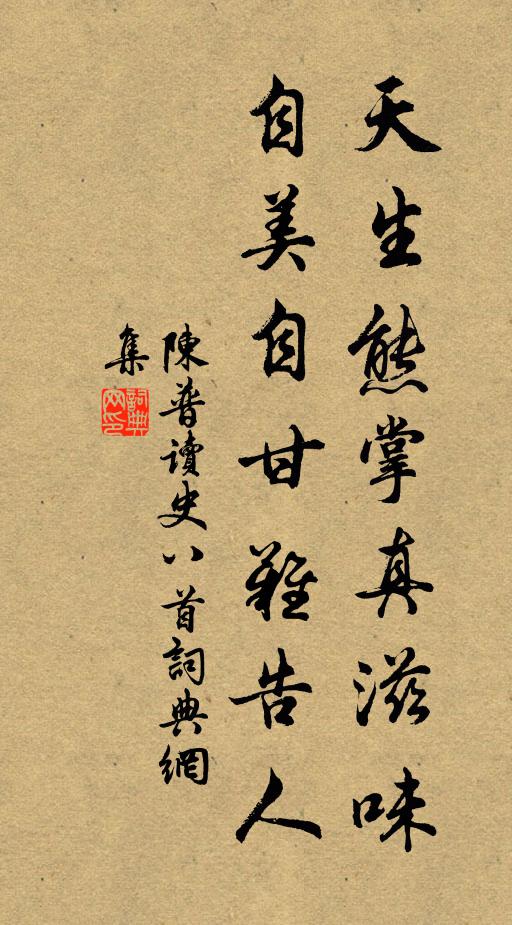 天生熊掌真滋味
自美自甘難告人
陳普讀史八首詞典網
集
詞典
网印